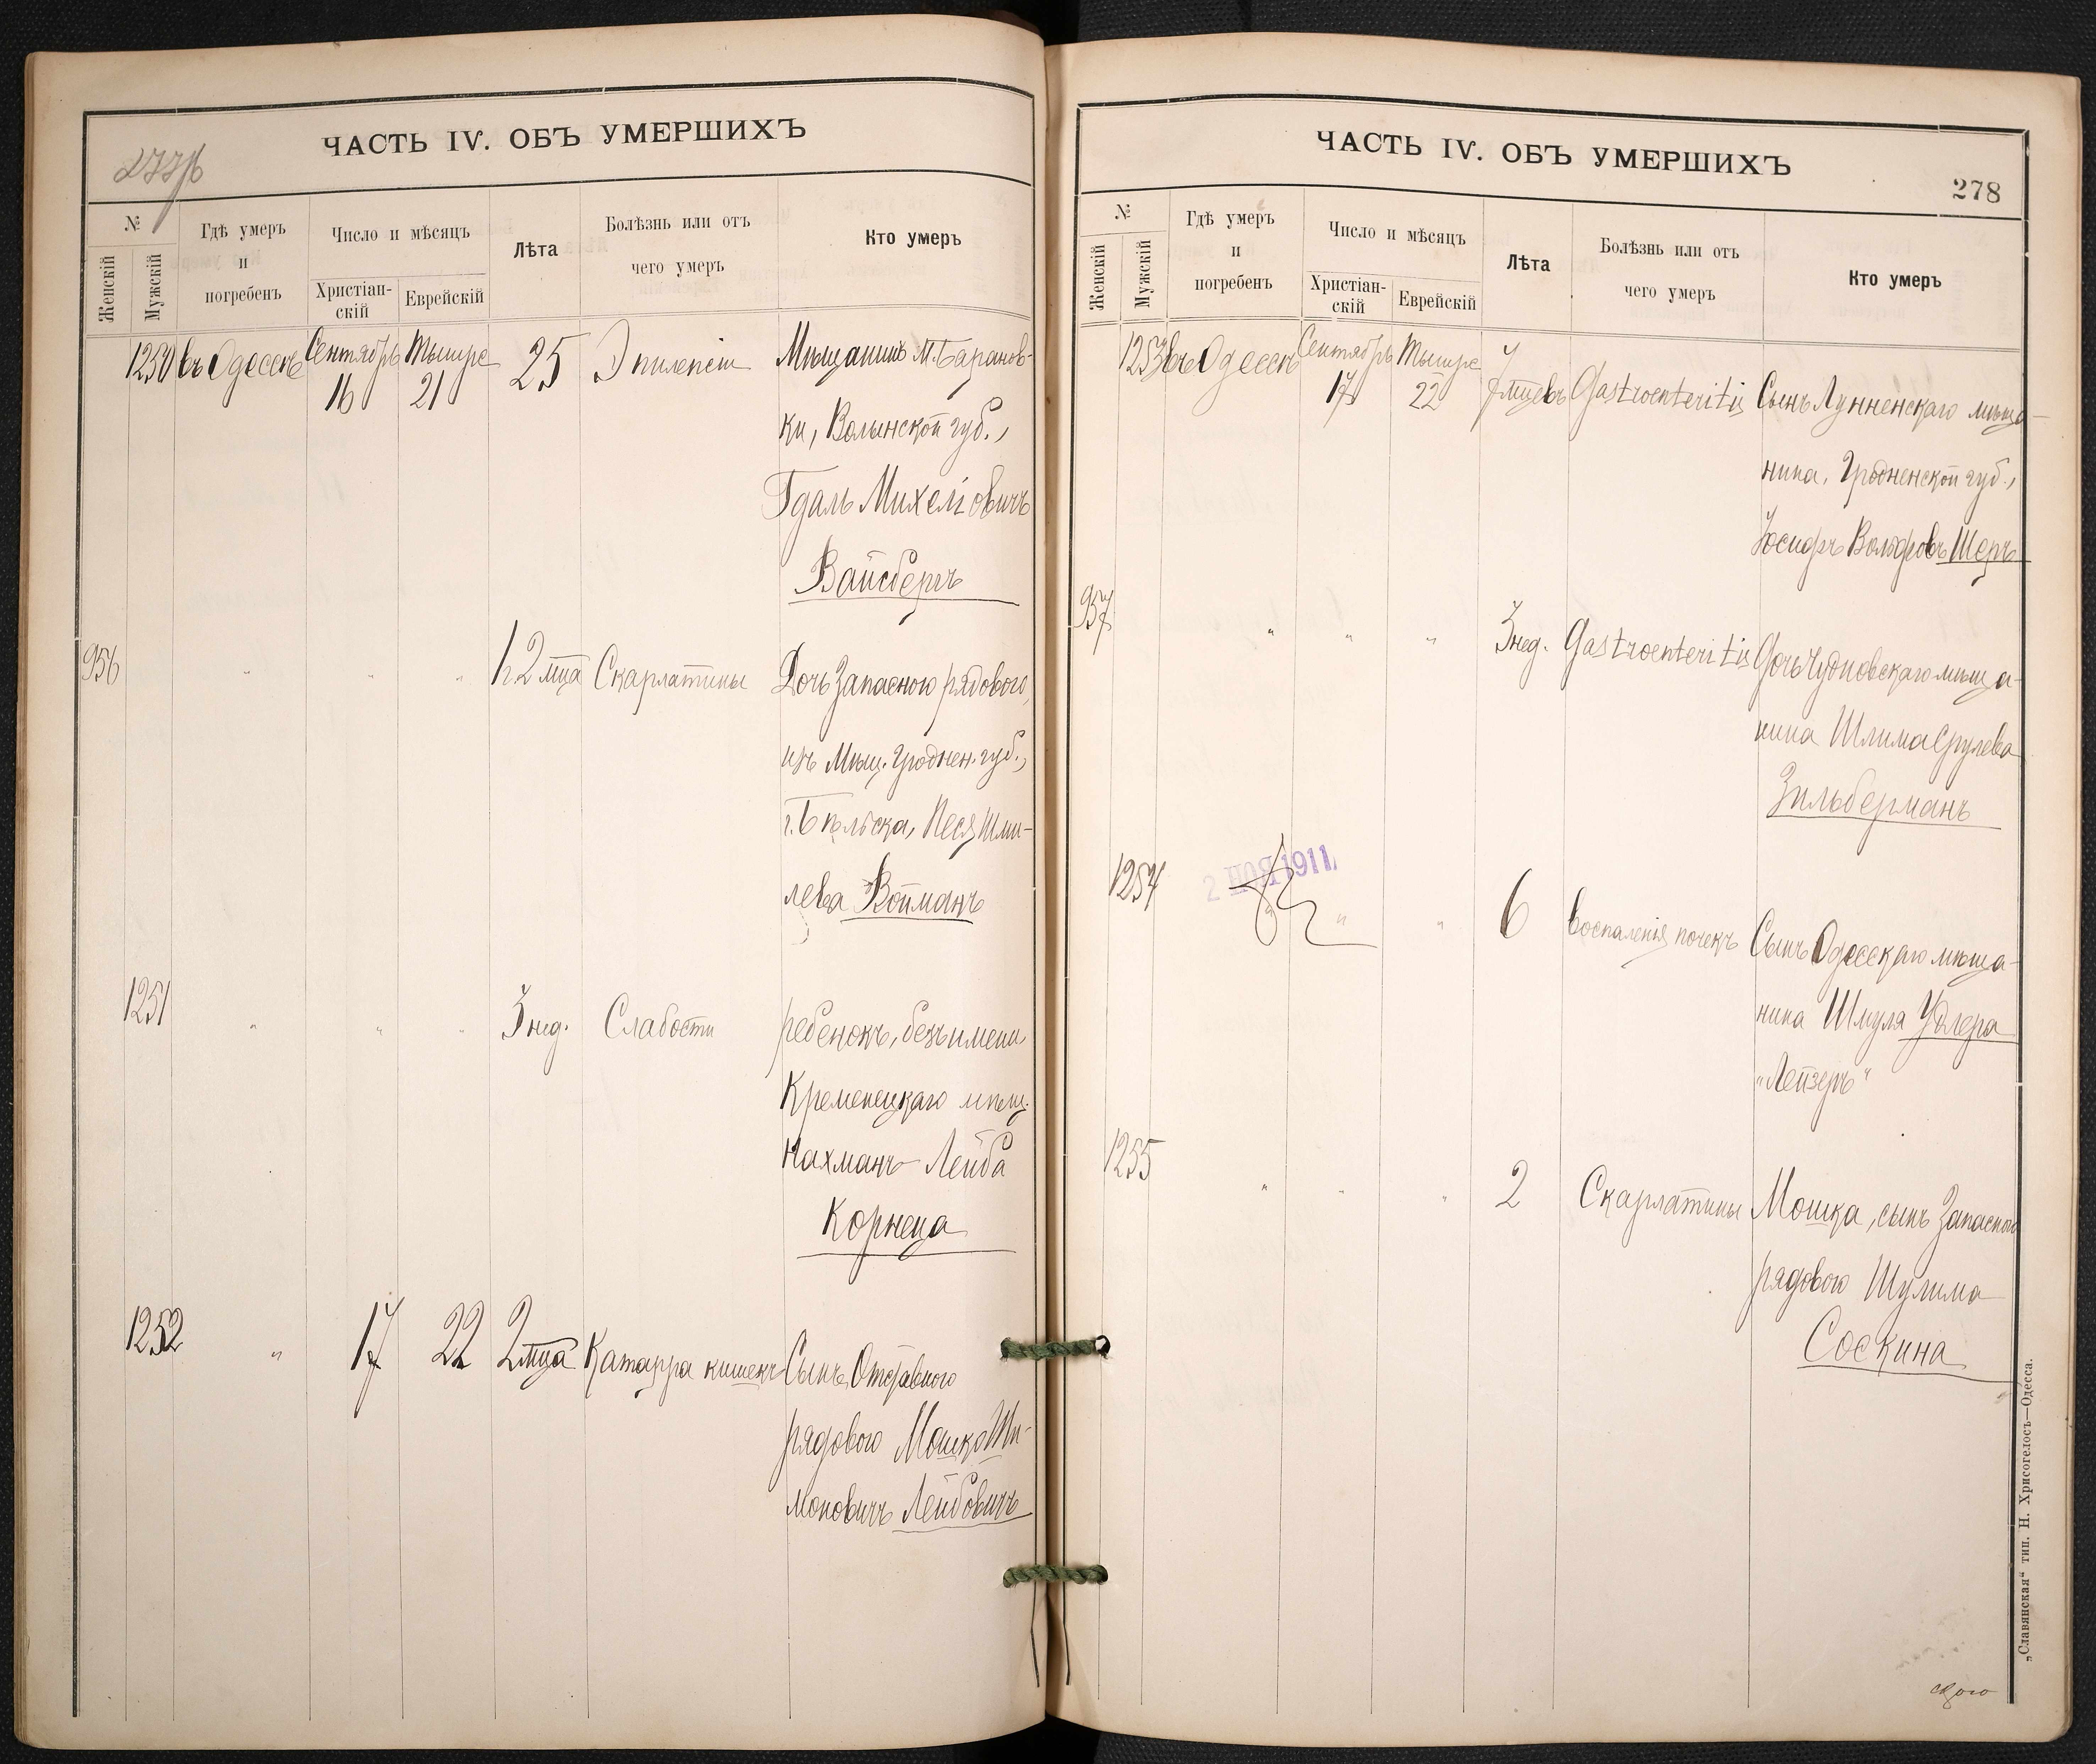 ЧАСТЬ IV. ОБЪ УМЕРШИХЪ
№
Женскій
Мужскій
Гдѣ умеръ
и
погребенъ
Число и мѣсяцъ
Христіан-
скій
Еврейскій
Лѣта
Болѣзнь или отъ
чего умеръ
Кто умеръ
1250 въ Одессѣ Сентябрь 16 Тышре 21 25 Эпилепсіи Мѣщанинъ М. Баранов-
ки, Волынской губ.,
Гдаль Михелiовичъ
Вайсбергъ
956 " " " 1 2 мца Скарлатины Дочь Запасного рядового,
изъ Мѣщ. Гроднен. губ.,
г. Бѣльска, Песя Шми-
лева Войманъ
1251 " " " 3 нед. Слабости ребенокъ, безъ имени,
Кременецкаго мѣщ.
Нахманъ Лейба
Корнеца
1252 " 17 22 2 мца Катарра кишекъ Сынъ Отставного
рядового Мошко Ши-
моновичъ Лейбовичъ
ЧАСТЬ IV. ОБЪ УМЕРШИХЪ
278
№
Женскій
Мужскій
Гдѣ умеръ
и
погребенъ
Число и мѣсяцъ
Христіан-
скій
Еврейскій
Лѣта
Болѣзнь или отъ
чего умеръ
Кто умеръ
1253 въ Одессѣ Сентябрь 17 Тышре 22 7 мцевъ Gastroenteritis Сынъ Лунненскаго мѣща-
нина, Гродненской губ.,
Іосифъ Вольфовъ Шеръ
957 " " " 3 нед. Gastroenteritis Дочь Чудновскаго мѣща-
нина Шлима Срулева
Зильберманъ
2 НОЯ 1911
1254 " " " 6 воспаленія почекъ Сынъ Одесскаго мѣща-
нина Шмуля Удлера
"Лейзеръ"
1255 " " " 2 Скарлатины Мошка, сынъ Запасного
рядового Шулима
Соскина
„Славянская“ тип. Н. Хрисогелосъ—Одесса.